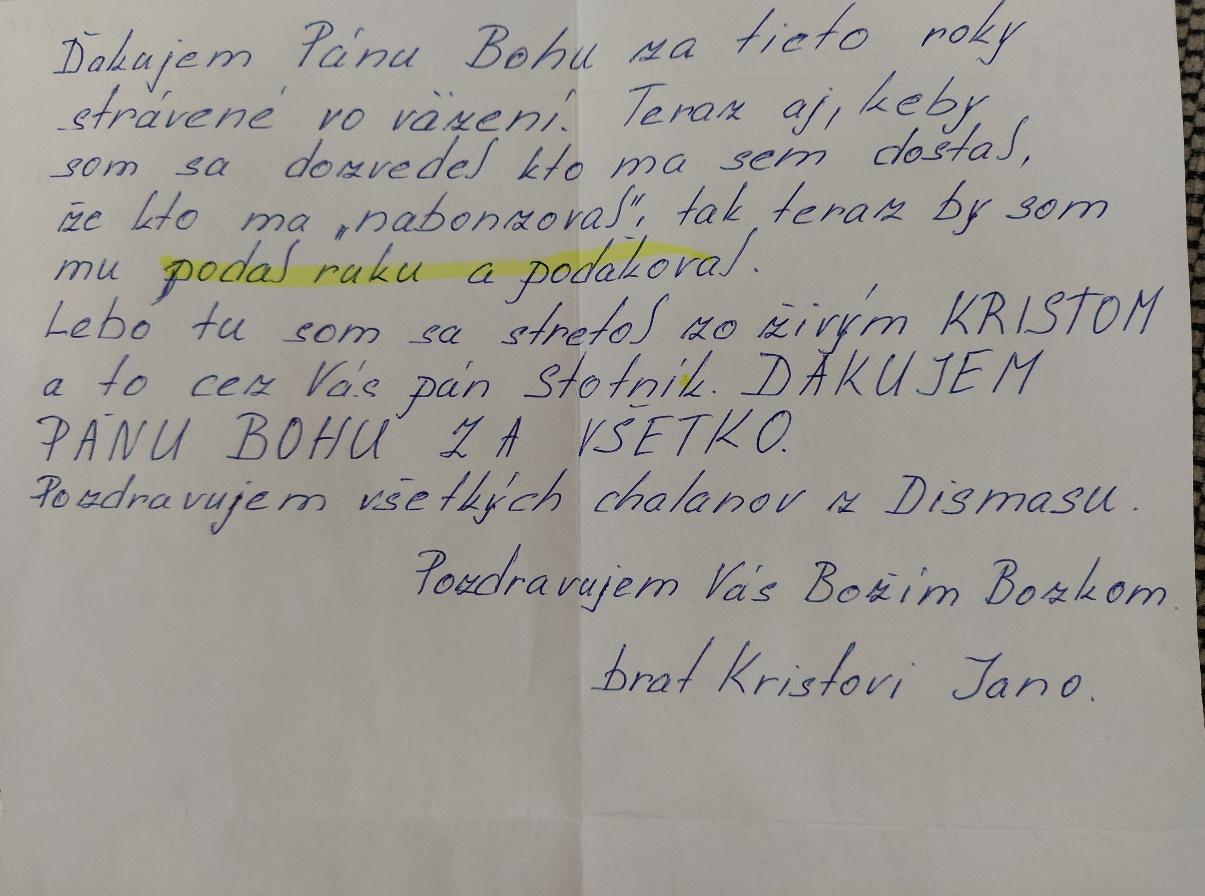 Ďakujem Pánu Bohu za tieto roky
strávené vo väzení. Teraz aj, keby
som sa dozvedel kto ma sem dostal,
že kto ma „nabonzoval", tak teraz by som
mu podal ruku a poďakoval.
Lebo tu som sa stretol zo živým KRISTOM
a to cez Vás pán Stotník. ĎAKUJEM
PÁNU BOHU ZA VŠETKO.
Pozdravujem všetkých chalanov z Dismasu.
Pozdravujem Vás Božím Bozkom.
brat Kristovi Jano.